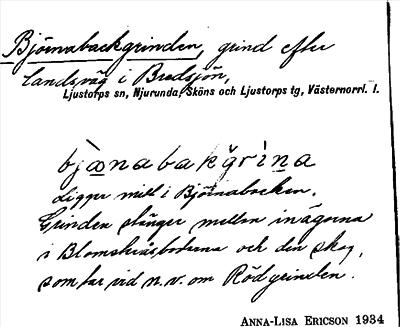 Björnabackgrinden, grind efter
landsväg i Bredsjön,
Ljustorps sn, Njurunda, Sköns och Ljustorps tg, Västernorrl. l.
bjænabakgrìna
Ligger mitt i Björnabacken.
Grinden stänger mellan inägorna
i Blomkråsbodarna och den skog,
som tar vid n.v. om Rödgrinden.
ANNA-LISA ERICSON 1934